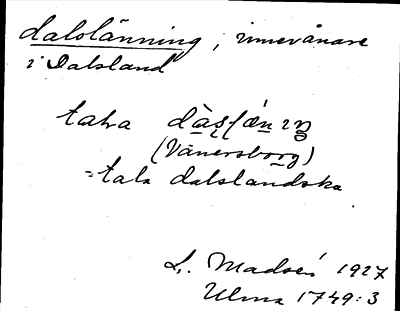 dalslänning, innevånare
i Dalsland
tala
(Vänersborg)
= tala dalslandska
L. Madsén 1927
Ulma 1749:3